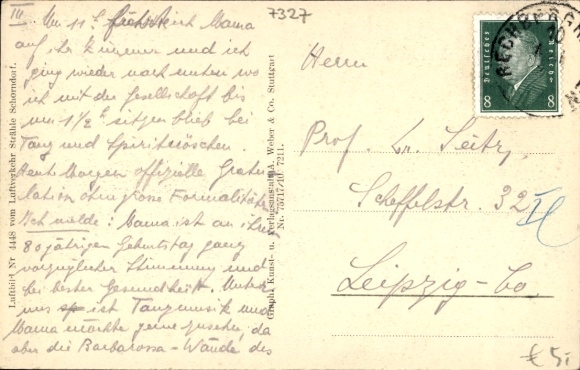 III
7327
Um 11 h frühstückt Mama
auf ihr Zimmer und ich
ging wieder nach unten wo
ich mit der Gesellschaft bis
um 1 1/2 h sitzen blieb bei
Tanz und
Heut Morgen offizielle Gratu
lation ohne grosse Formalitäten
Ich melde: Mama ist an ihrem
80 jährigen Geburtstag ganz
vorzüglicher Stimmung und
bei bester Gesundheit. Unter
uns ist Tanzmusik und
Mama möchte gerne zusehen, da
aber die Barbarossa-Wände des
Luftbild Nr. 1448 vom Luftverkehr Strähle Schorndorf.
Graph. Kunst- u. Verlagsanstalt A. Weber & Co. Stuttgart
Deutsches Reich
8 8
Herrn
Prof. Dr. Seitz,
Scheffelstr. 32 II
Leipzig-Co.
€ 5,-